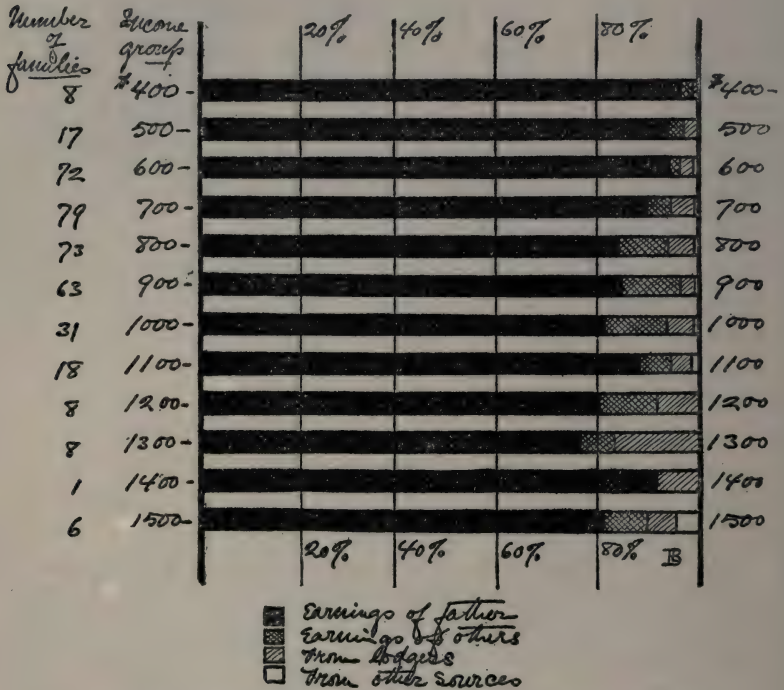 Number
of
families
Income
group
20% 40% 60% 80%
8 $400- $400-
17 500- 500
72 600- 600
79 700- 700
73 800- 800
63 900- 900
31 1000- 1000
18 1100- 1100
8 1200- 1200
8 1300- 1300
1 1400- 1400
6 1500- 1500
20% 40% 60% 80% B
Earnings of father
Earnings of others
From lodgers
From other sources